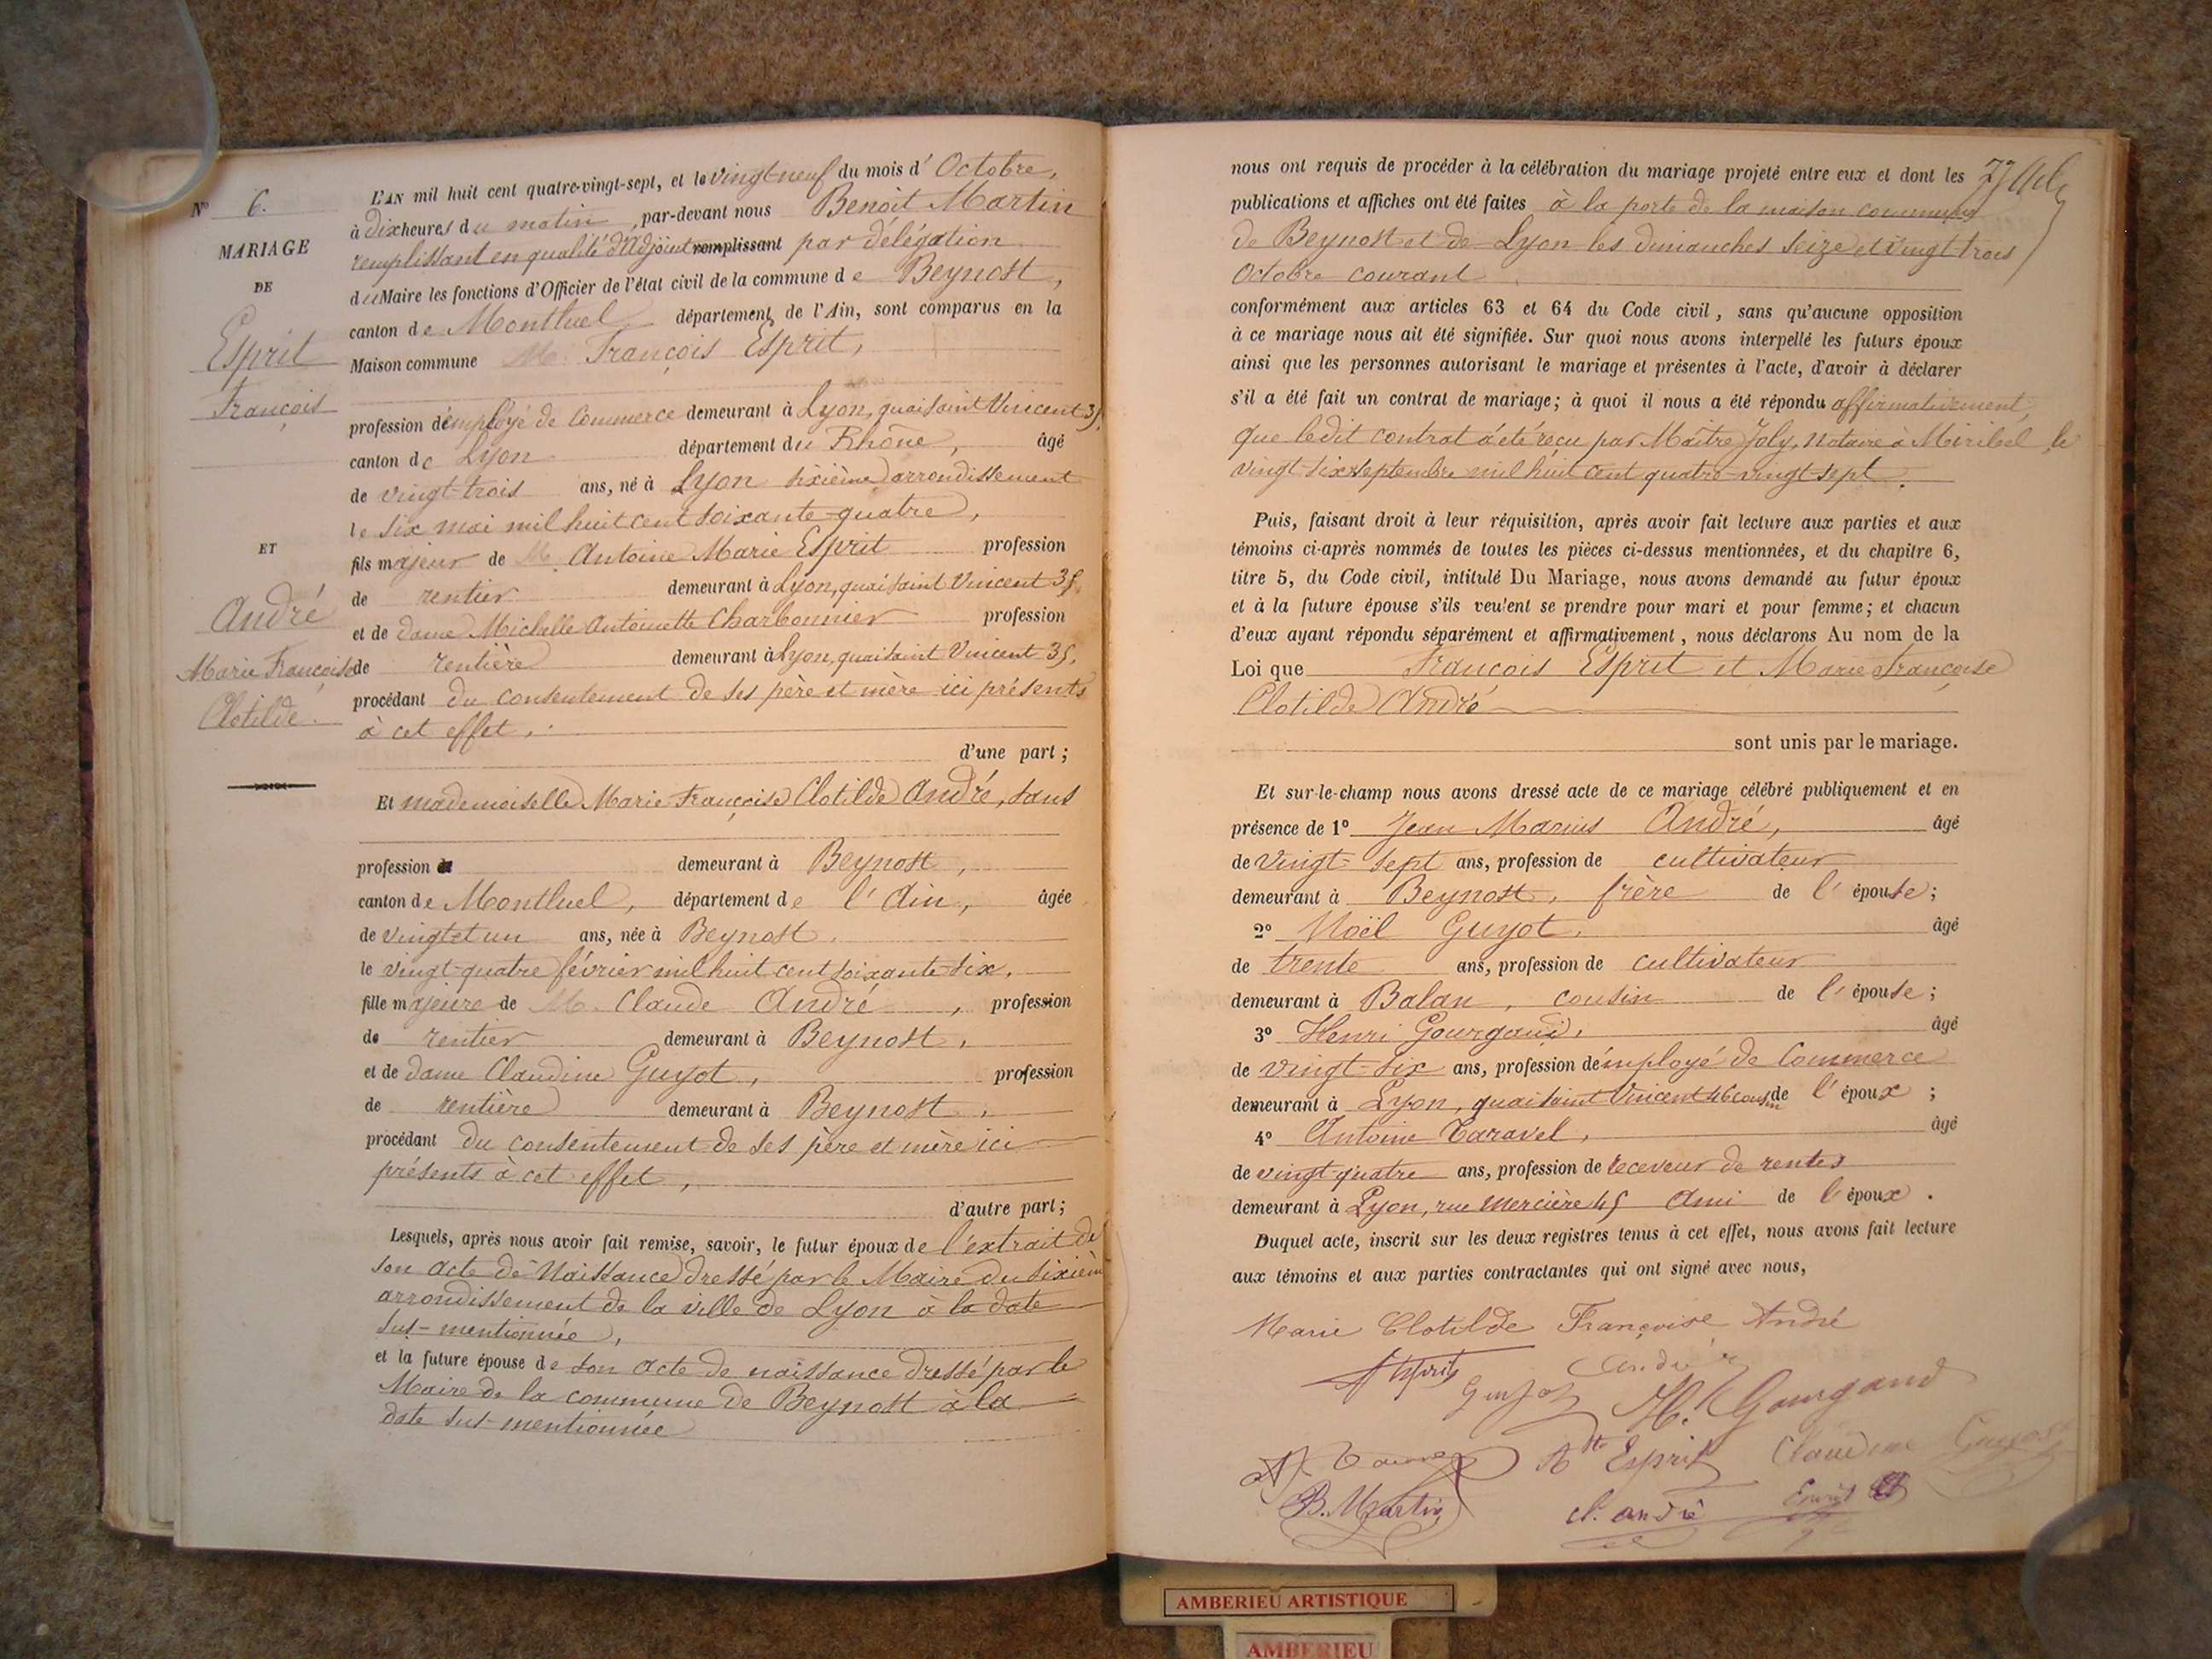 N° 6.
MARIAGE
DE
Esprit
François
ET
André
Marie Françoise
Clotilde.
L'AN mil huit cent quatre-vingt-sept, et le vingt-neuf du mois d' Octobre,
à dix heures du matin, par-devant nous Benoît Martin
remplissant en qualité d'Adjoint remplissant par délégation
du Maire les fonctions d'Officier de l'état civil de la commune de Beynost,
canton de Montluel département de l'Ain, sont comparus en la
Maison commune M. François Esprit,
profession d'employé de Commerce demeurant à Lyon, quai saint Vincent 35,
canton de Lyon département du Rhône, âgé
de vingt-trois ans, né à Lyon sixième arrondissement
le six mai mil huit cent soixante-quatre,
fils majeur de M. Antoine Marie Esprit profession
de rentier demeurant à Lyon, quai saint Vincent 35,
et de dame Michelle Antoinette Charbonnier profession
de rentière demeurant à Lyon, quai saint Vincent 35,
procédant du consentement de ses père et mère ici présents
à cet effet,
d'une part;
Et mademoiselle Marie Françoise Clotilde André, sans
profession demeurant à Beynost,
canton de Montluel, département de l'Ain, âgée
de vingt et un ans, née à Beynost,
le vingt-quatre février mil huit cent soixante-six,
fille majeure de M. Claude André, profession
de rentier demeurant à Beynost,
et de dame Claudine Guyot, profession
de rentière demeurant à Beynost,
procédant du consentement de ses père et mère ici
présents à cet effet,
d'autre part;
Lesquels, après nous avoir fait remise, savoir, le futur époux de l'extrait de
son acte de Naissance dressé par le Maire du sixième
arrondissement de la ville de Lyon à la date
sus-mentionnée,
et la future épouse de son acte de naissance dressé par le
Maire de la commune de Beynost à la
date sus-mentionnée
nous ont requis de procéder à la célébration du mariage projeté entre eux et dont les
publications et affiches ont été faites à la porte de la maison commune
de Beynost et de Lyon les dimanches seize et vingt trois
Octobre courant
conformément aux articles 63 et 64 du Code civil, sans qu'aucune opposition
à ce mariage nous ait été signifiée. Sur quoi nous avons interpellé les futurs époux
ainsi que les personnes autorisant le mariage et présentes à l'acte, d'avoir à déclarer
s'il a été fait un contrat de mariage; à quoi il nous a été répondu affirmativement,
que ledit contrat a été reçu par Maître Joly, Notaire à Miribel, le
vingt-six septembre mil huit cent quatre-vingt-sept.
Puis, faisant droit à leur réquisition, après avoir fait lecture aux parties et aux
témoins ci-après nommés de toutes les pièces ci-dessus mentionnées, et du chapitre 6,
titre 5, du Code civil, intitulé Du Mariage, nous avons demandé au futur époux
et à la future épouse s'ils veulent se prendre pour mari et pour femme; et chacun
d'eux ayant répondu séparément et affirmativement, nous déclarons Au nom de la
Loi que François Esprit et Marie Françoise
Clotilde André
sont unis par le mariage.
Et sur-le-champ nous avons dressé acte de ce mariage célébré publiquement et en
présence de 1° Jean Marius André, âgé
de vingt-sept ans, profession de cultivateur
demeurant à Beynost, frère de l'épouse;
2° Noël Guyot, âgé
de trente ans, profession de cultivateur
demeurant à Balan, cousin de l'épouse;
3° Henri Gourgaud, âgé
de vingt-six ans, profession d'employé de Commerce
demeurant à Lyon, quai saint Vincent 46 cousin de l'époux;
4° Antoine Taravel, âgé
de vingt-quatre ans, profession de receveur de rentes
demeurant à Lyon, rue Mercière 45 Ami de l'époux.
Duquel acte, inscrit sur les deux registres tenus à cet effet, nous avons fait lecture
aux témoins et aux parties contractantes qui ont signé avec nous,
Marie Clotilde Françoise André
Esprit André
Guyot H. Gourgaud
Esprit Claudine Guyot
B. Martin Cl. André Esprit
AMBERIEU ARTISTIQUE
AMBERIEU